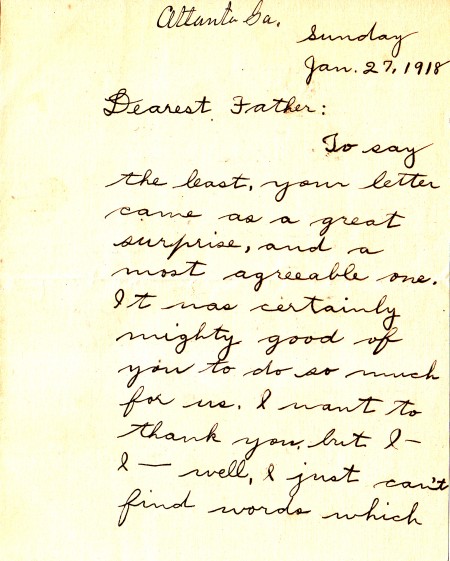 Atlanta Ga.
Sunday
Jan. 27, 1918
Dearest Father:
To say
the least, your letter
came as a great
surprise, and a
most agreeable one.
It was certainly
mighty good of
you to do so much
for us. I want to
thank you, but I—
I— well, I just can't
find words which